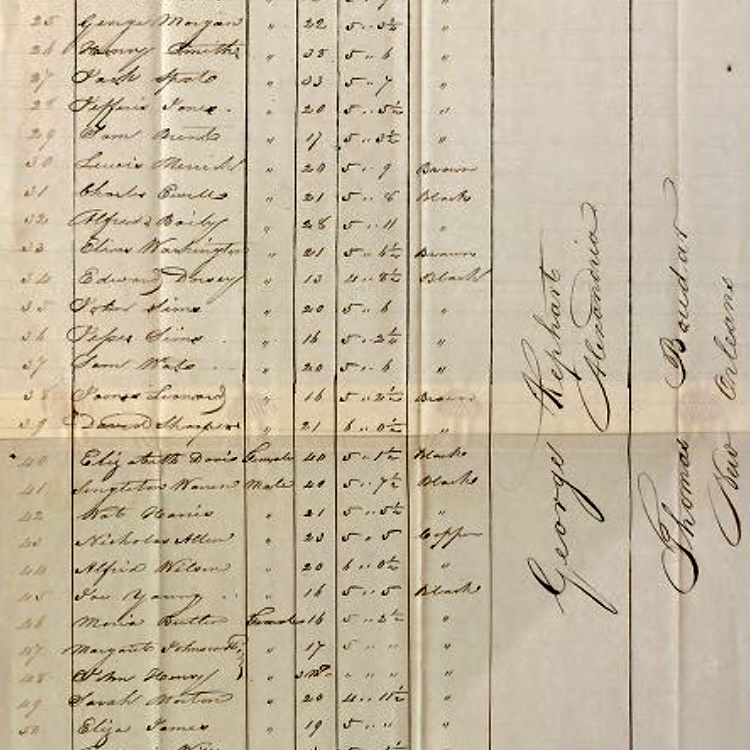 25 George Morgan " 22 5 .. 3½ "
26 Henry Smith " 35 5 .. 6 "
27 " 33 5 .. 7 "
28 Jefferis Jones " 20 5 .. 5½ "
29 Sam " 17 5 .. 3½ "
30 Lewis " 20 5 .. 9 Brown
31 Charles Ewell " 21 5 .. 8 Black
32 Alfred Baily " 28 5 .. 11 "
33 Elias Washington " 21 5 .. 6½ Brown
34 Edward Dorsey " 13 4 .. 8½ Black
35 John Sims " 20 5 .. 6 "
36 Sims " 16 5 .. "
37 Sam " 20 5 .. 6 "
38 James Leonard " 16 5 .. 2½ Brown
39 David " 21 6 .. 0½ "
40 Elizabeth Davis Female 40 5 .. 1½ Black
41 Singleton Warren Male 40 5 .. 7½ Black
42 Harris " 21 5 .. 5½ "
43 Nicholas Allen " 23 5 .. 5 Copper
44 Alfrid Wilson " 20 6 .. 0½ "
45 Joe Young " 16 5 .. 5 Black
46 Maria Butler Female 16 5 .. 2½ "
47 Margaret " 17 5 .. " "
48 John Henry " " " "
49 Sarah " 20 4 .. 11½ "
50 Eliza James " 19 5 .. " "
George Kephart
Alexandria
Thomas Boudar
New Orleans